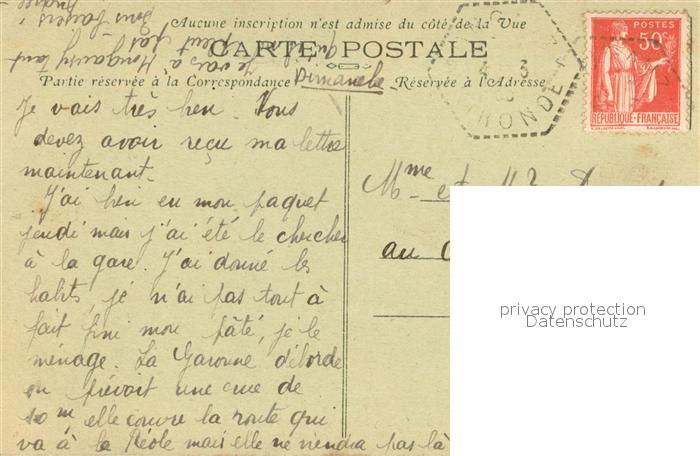 Aucune inscription n'est admise du côté de la Vue
CARTE POSTALE
Partie réservée à la Correspondance
Réservée à l'Adresse
Dimanche
POSTES
50c
RÉPUBLIQUE-FRANÇAISE
Je vais très bien. Vous
devez avoir reçu ma lettre
maintenant.
J'ai bien eu mon paquet
jeudi mais j'ai été le chercher
à la gare. J'ai donné les
habits, je n'ai pas tout à
fait fini mon pâté, je le
ménage. La Garonne déborde
on prévoit une crue de
10 m elle couvre la route qui
va à la Réole mais elle ne viendra pas là
Mme et M
au
privacy protection
Datenschutz